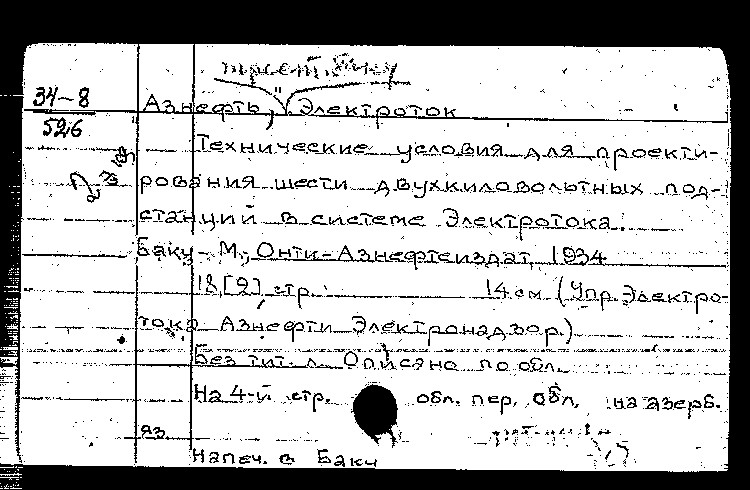 трест. Баку
34-8
526
Азнефть, Электроток
Технические условия для проекти-
рования шести двухкиловольтных под-
станций в системе Электротока.
Баку-М., Онти-Азнефтеиздат, 1934
18,[2] стр. 14 см (Упр. Электро-
тока Азнефти Электронадзор.)
Без тит. л. Описано по обл.
На 4-й стр. обл. пер. обл. на азерб.
яз
Напеч. в Баку